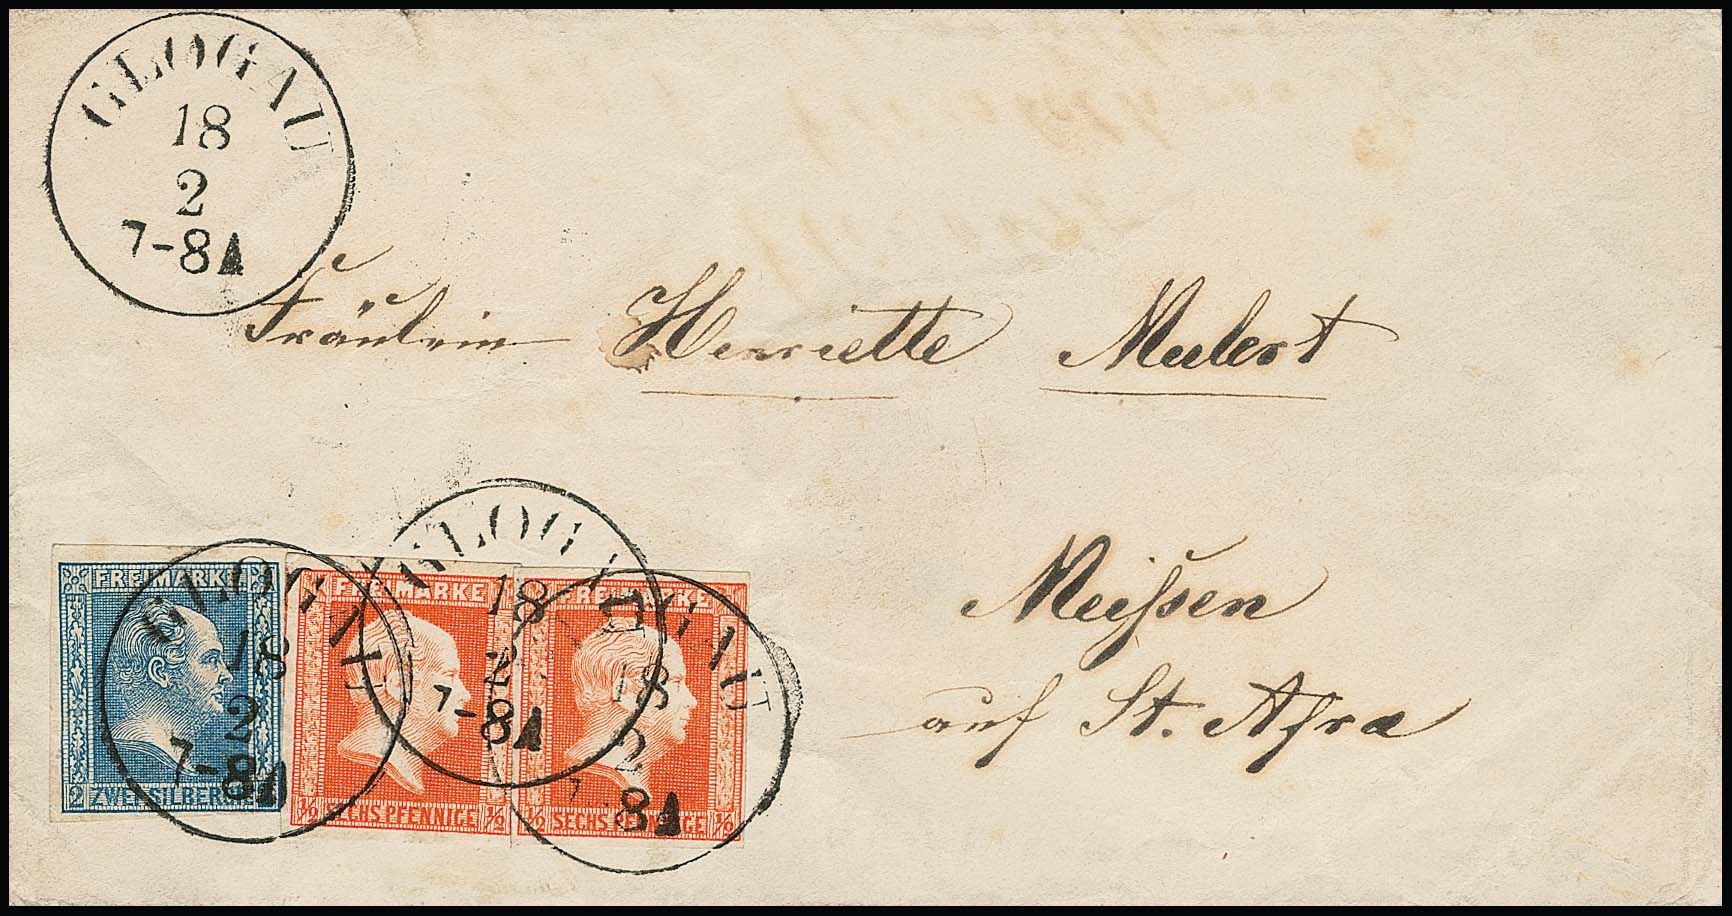 GLOGAU
18
2
7-8A
Fräulein Henriette Mulert
Meißen
auf St. Afra
GLOGAU
18
2
7-8A
GLOGAU
18
2
7-8A
GLOGAU
18
2
7-8A
FREIMARKE
2 ZWEI SILBERGR
FREIMARKE
1/2 SECHS PFENNIGE 1/2
FREIMARKE
1/2 SECHS PFENNIGE 1/2